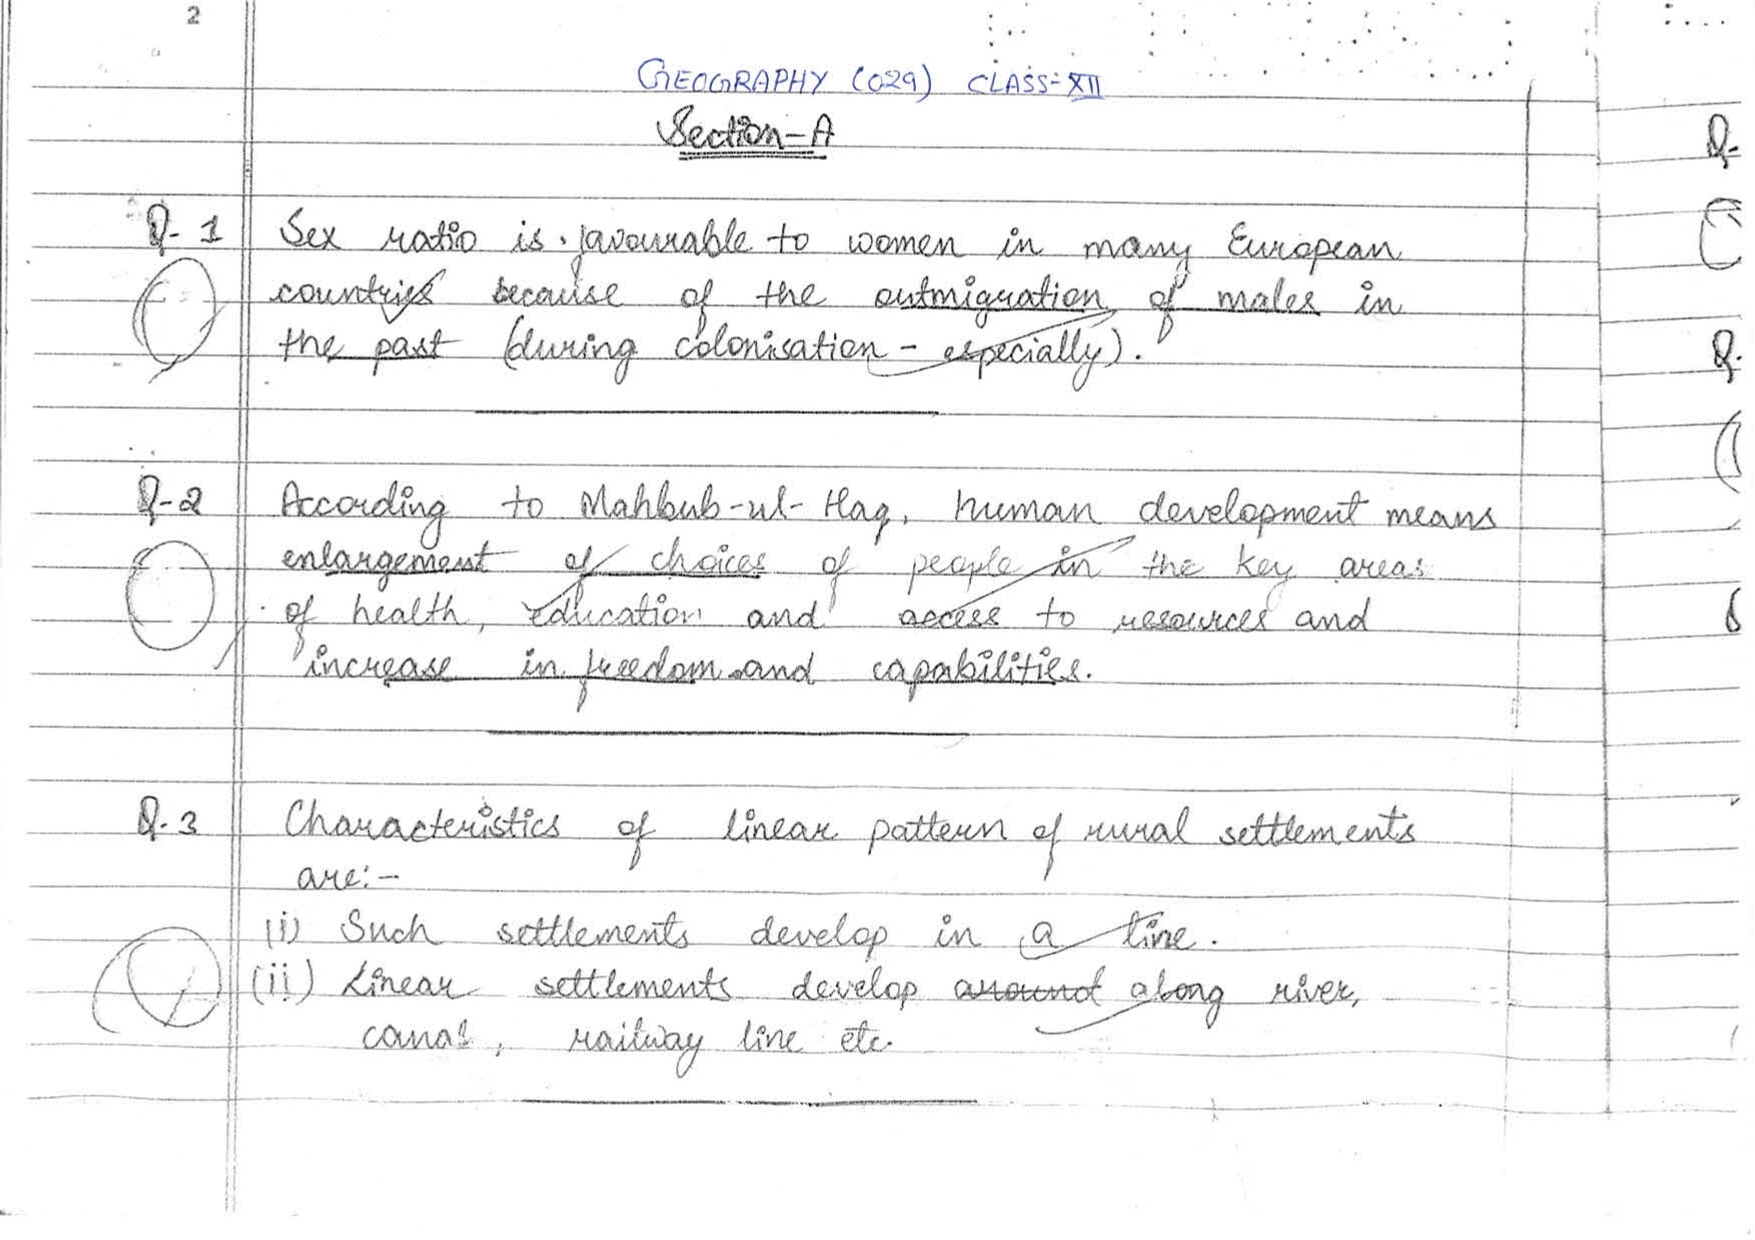 2
GEOGRAPHY (029) CLASS-XII
Section-A
Q-1 Sex ratio is favourable to women in many European
countries because of the outmigration of males in
the past (during colonisation - especially).
Q-2 According to Mahbub-ul-Haq, human development means
enlargement of choices of people in the key areas
of health, education and access to resources and
increase in freedom and capabilities.
Q.3 Characteristics of linear pattern of rural settlements
are:-
(i) Such settlements develop in a line.
(ii) Linear settlements develop around along river,
canal, railway line etc.
Q-
Q.